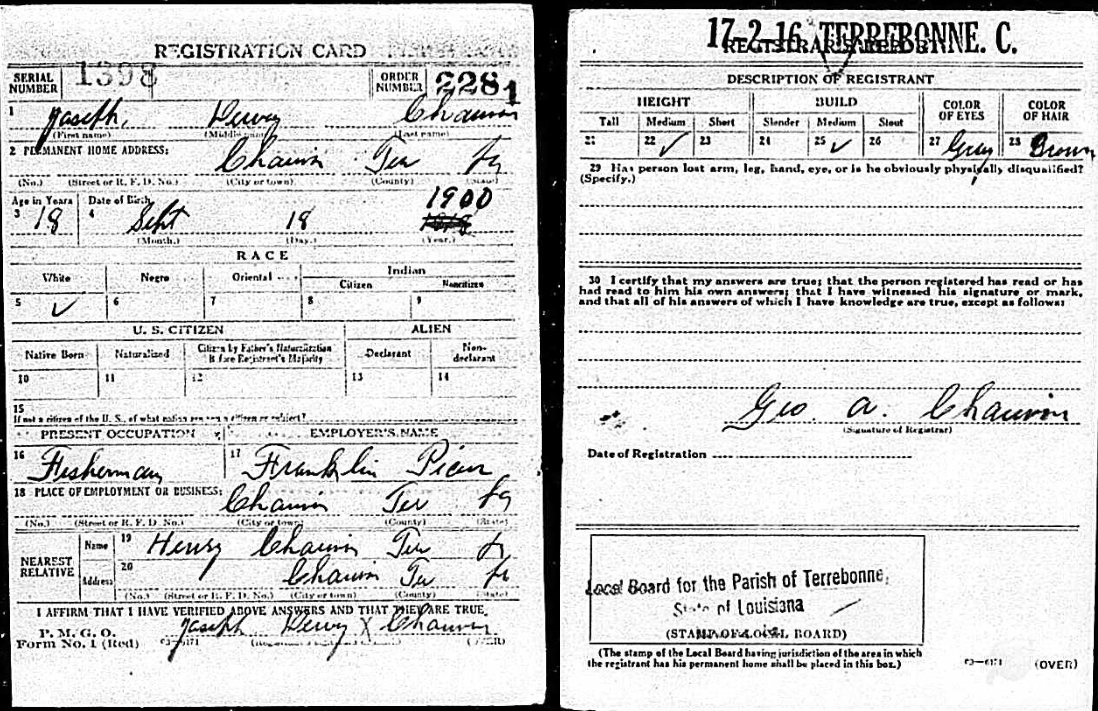 REGISTRATION CARD
SERIAL NUMBER 1398 ORDER NUMBER 2281
1 Joseph Dewey Chauvin
(First name) (Middle name) (Last name)
2 PERMANENT HOME ADDRESS:
Chauvin Ter La
(No.) (Street or R. F. D. No.) (City or town) (County) (State)
Age in Years Date of Birth 1900
3 18 4 Sept 18
(Month.) (Day.) (Year.)
RACE
White Negro Oriental Indian
Citizen Noncitizen
5 ✓ 6 7 8 9
U. S. CITIZEN ALIEN
Native Born Naturalized Citizen by Father's Naturalization Before Registrant's Majority Declarant Non-declarant
10 11 12 13 14
15
If not a citizen of the U. S., of what nation are you a citizen or subject?
PRESENT OCCUPATION EMPLOYER'S NAME
16 Fisherman 17 Franklin
18 PLACE OF EMPLOYMENT OR BUSINESS:
Chauvin Ter La
(No.) (Street or R. F. D. No.) (City or town) (County) (State)
NEAREST RELATIVE
Name 19 Henry Chauvin Ter La
Address 20 Chauvin Ter La
(No.) (Street or R. F. D. No.) (City or town) (County) (State)
I AFFIRM THAT I HAVE VERIFIED ABOVE ANSWERS AND THAT THEY ARE TRUE
P. M. G. O.
Form No. 1 (Red) 03-6171 Joseph Dewey X Chauvin
(OVER)
17-2-16 TERREBONNE. C.
REGISTRAR'S REPORT
DESCRIPTION OF REGISTRANT
HEIGHT BUILD COLOR OF EYES COLOR OF HAIR
Tall Medium Short Slender Medium Stout
21 22 ✓ 23 24 25 ✓ 26 27 Gray 28 Brown
29 Has person lost arm, leg, hand, eye, or is he obviously physically disqualified?
(Specify.)
30 I certify that my answers are true; that the person registered has read or has
had read to him his own answers; that I have witnessed his signature or mark,
and that all of his answers of which I have knowledge are true, except as follows:
Geo. A. Chauvin
(Signature of Registrar)
Date of Registration
Local Board for the Parish of Terrebonne,
State of Louisiana
(STAMP OF LOCAL BOARD)
(The stamp of the Local Board having jurisdiction of the area in which
the registrant has his permanent home shall be placed in this box.)
03-6171 (OVER)